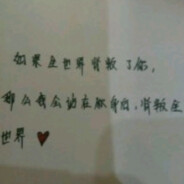 如果全世界背叛了你,
那么我会站在你身后,背叛全
世界